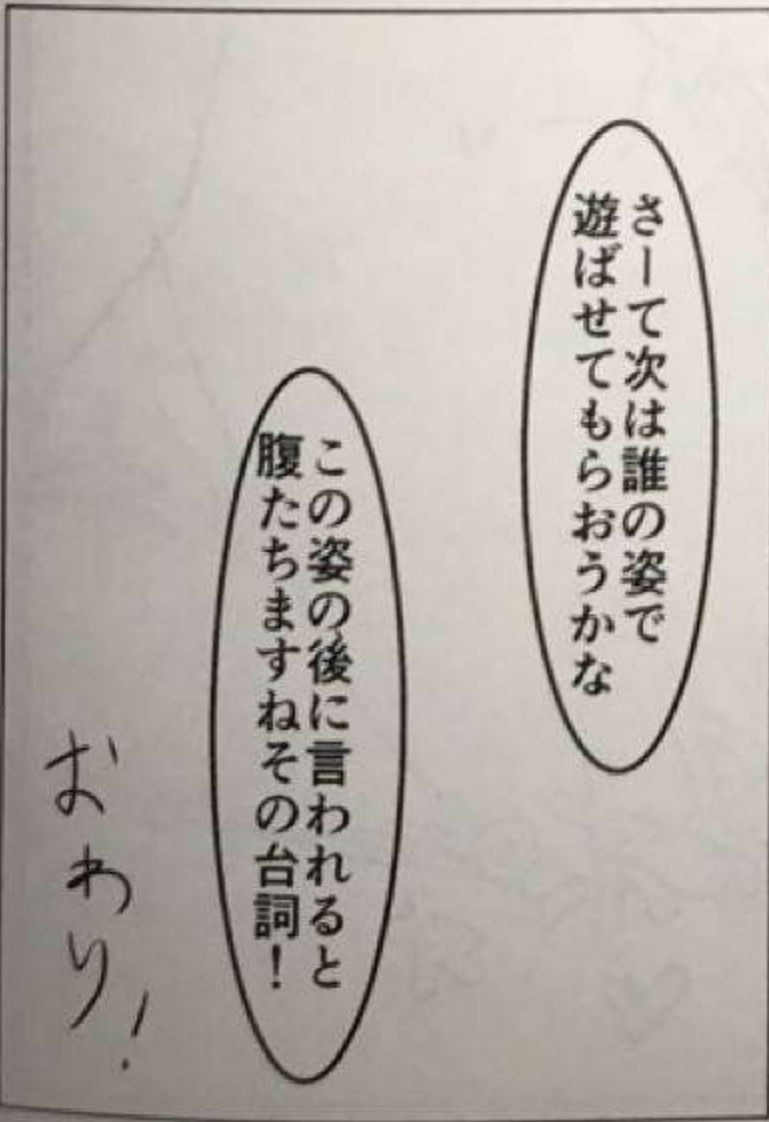 さーて次は誰の姿で
遊ばせてもらおうかな
この姿の後に言われると
腹たちますねその台詞！
おわり！